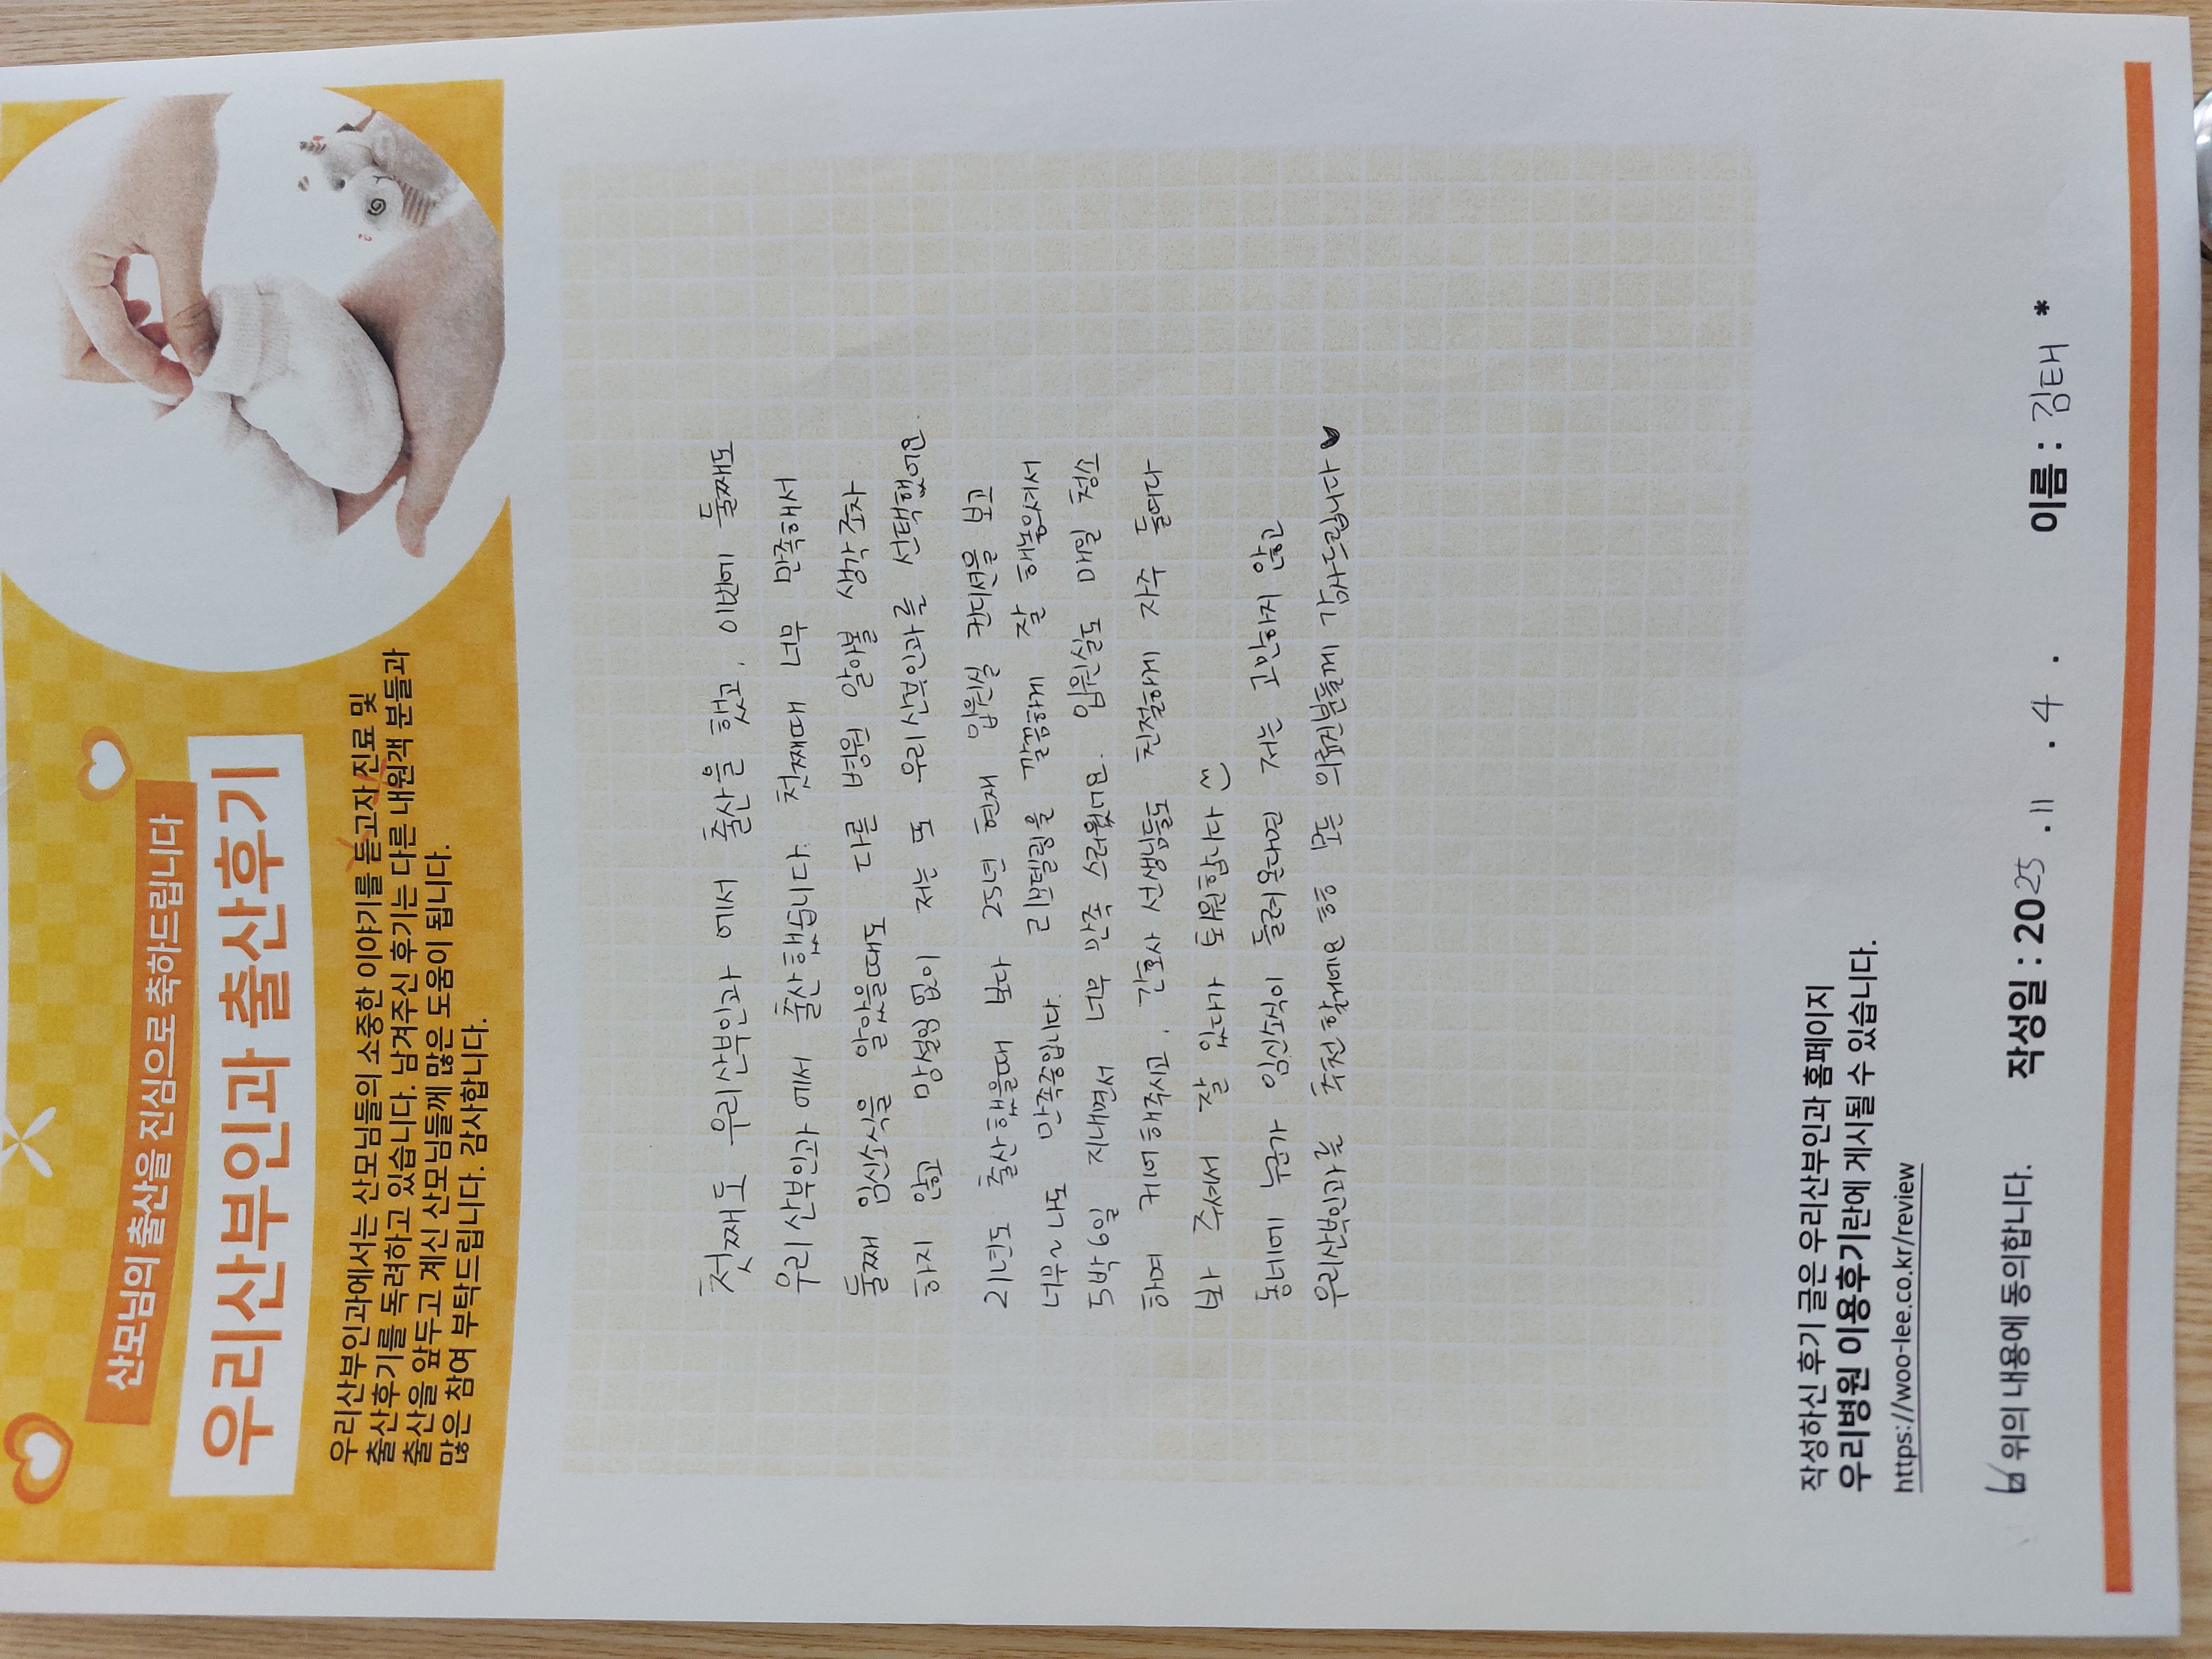 산모님의 출산을 진심으로 축하드립니다
우리산부인과 출산후기
우리산부인과에서는 산모님들의 소중한 이야기를 듣고자 진료 및
출산후기를 독려하고 있습니다. 남겨주신 후기는 다른 내원객 분들과
출산을 앞두고 계신 산모님들께 많은 도움이 됩니다.
많은 참여 부탁드립니다. 감사합니다.
첫째도 우리산부인과 에서 출산을 했고, 이번에 둘째도
우리산부인과 에서 출산했습니다. 첫째때 너무 만족해서
둘째 임신소식을 알았을때도 다른 병원 알아볼 생각조차
하지 않고 망설임 없이 저는 또 우리산부인과를 선택했어요
21년도 출산했을때 보다 25년 현재 입원실 컨디션을 보고
너무~나도 만족중입니다. 리모델링을 깔끔하게 잘 해놓으셔서
5박6일 지내면서 너무 만족 스러웠어요. 입원실도 매일 청소
하며 케어해주시고, 간호사 선생님들도 친절하게 자주 들여다
봐 주셔서 잘 있다가 퇴원합니다
동네에 누군가 임신소식이 들려온다면 저는 고민하지 않고
우리산부인과를 추천할게요 ㅎㅎ 모든 의료진분들께 감사드립니다♥
작성하신 후기 글은 우리산부인과 홈페이지
우리병원 이용후기란에 게시될 수 있습니다.
https://woo-lee.co.kr/review
위의 내용에 동의합니다. 작성일 : 2025 . 11 . 4 . 이름 : 김태 *